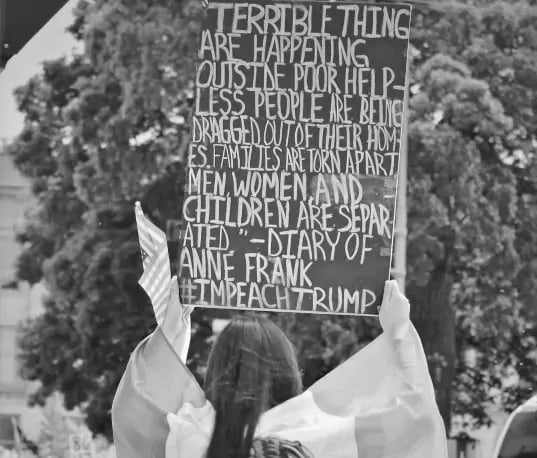 TERRIBLE THING
ARE HAPPENING
OUTSIDE POOR HELP-
LESS PEOPLE ARE BEING
DRAGGED OUT OF THEIR HOM
ES. FAMILIES ARE TORN APART
MEN, WOMEN, AND
CHILDREN ARE SEPAR
ATED " - DIARY OF
ANNE FRANK
#IMPEACH TRUMP